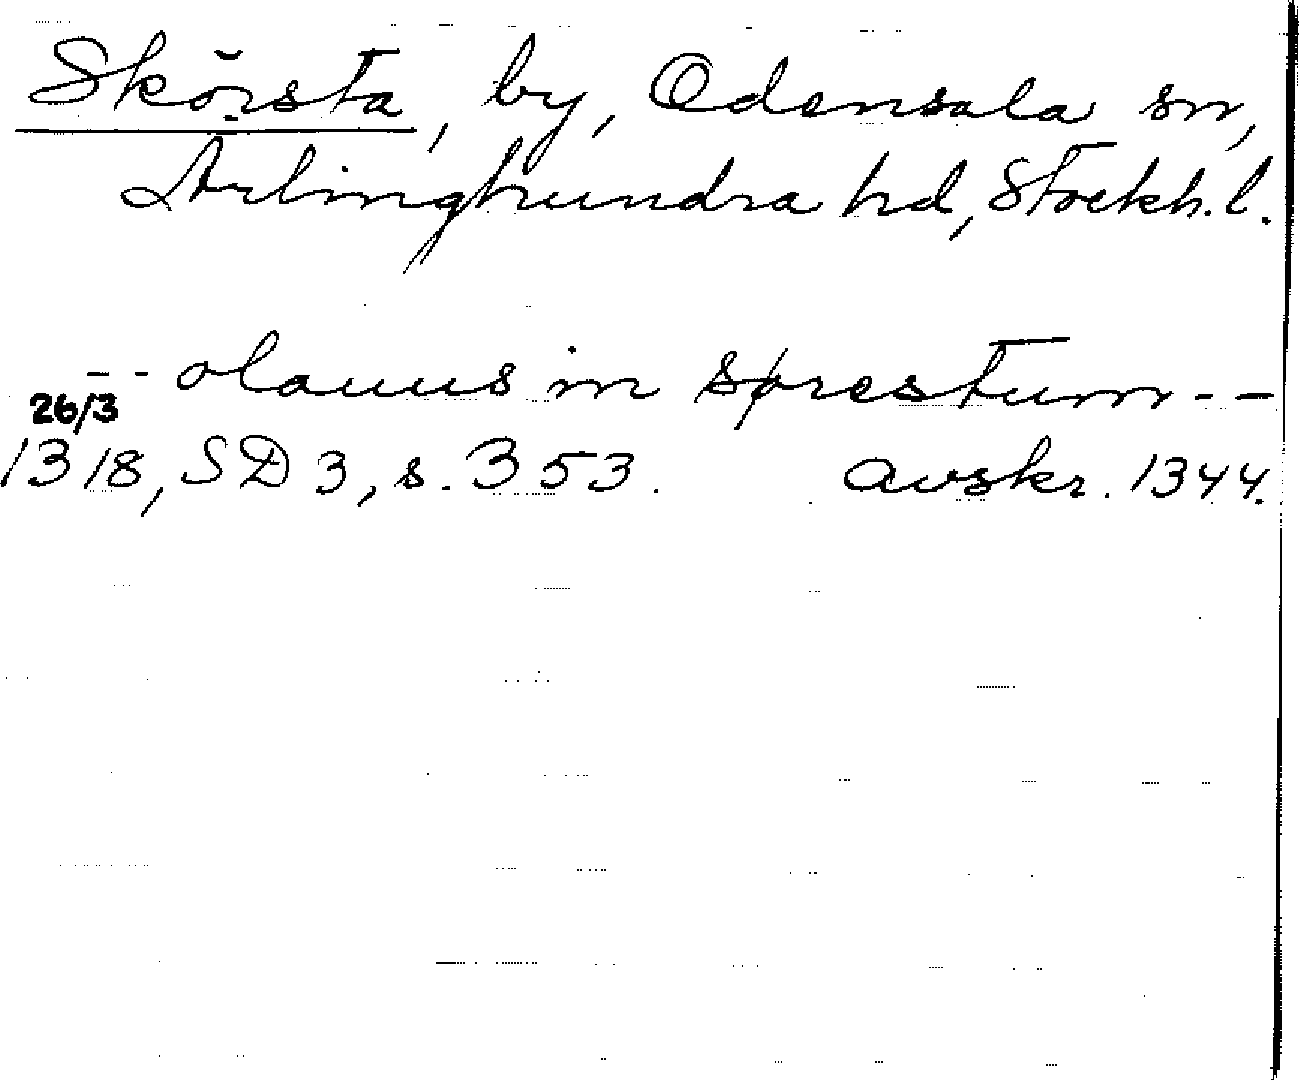 Skörsta, by, Odensala sn,
Ärlinghundra hd, Stockh. l.
-- olauus in sørestum --
26/3
1318, SD 3, s. 353. avskr. 1344.